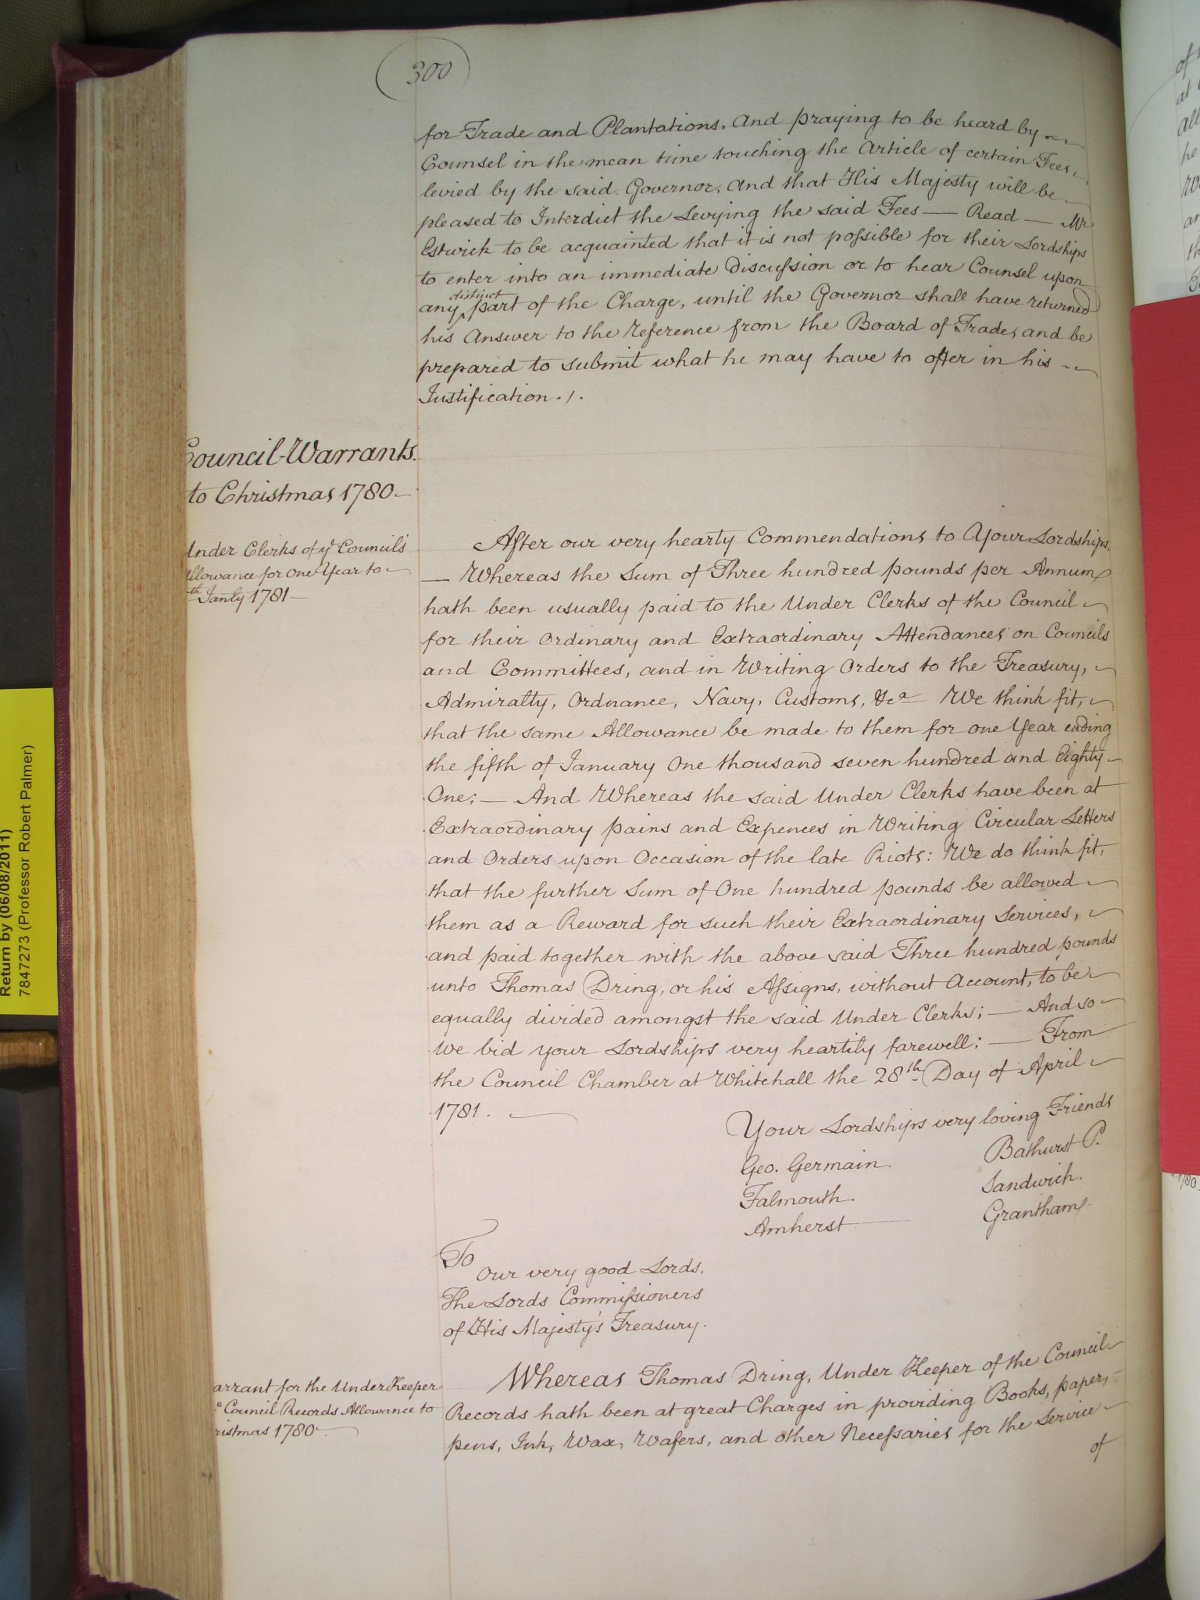 300
for Trade and Plantations, And praying to be heard by
Counsel in the mean time touching the Article of certain Fees,
levied by the said Governor, And that His Majesty will be
pleased to Interdict the Levying the said Fees — Read — Mr
Estwick to be acquainted that it is not possible for their Lordships
to enter into an immediate Discussion or to hear Counsel upon
distinct
any ‸ part of the Charge, until the Governor shall have returned
his Answer to the Reference from the Board of Trade, and be
prepared to submit what he may have to offer in his
Justification ./.
Council-Warrants.
to Christmas 1780—
Under Clerks of ye Councils
Allowance for one Year to
th Janry 1781—
After our very hearty Commendations to Your Lordships,
— Whereas the Sum of Three hundred pounds per Annum
hath been usually paid to the Under Clerks of the Council
for their Ordinary and Extraordinary Attendances on Councils
and Committees, and in Writing Orders to the Treasury,
Admiralty, Ordnance, Navy, Customs, &ca We think fit,
that the same Allowance be made to them for one Year ending
the fifth of January One thousand seven hundred and Eighty-
One; — And Whereas the said Under Clerks have been at
Extraordinary pains and Expences in Writing Circular Letters
and Orders upon Occasion of the late Riots: We do think fit,
that the further Sum of One hundred pounds be allowed
them as a Reward for such their Extraordinary Services,
and paid together with the above said Three hundred pounds
unto Thomas Dring, or his Assigns, without Account, to be
equally divided amongst the said Under Clerks; — And so
We bid your Lordships very heartily farewell: — From
the Council Chamber at Whitehall the 28th Day of April
1781.
Your Lordships very loving Friends
Geo. Germain. Bathurst P.
Falmouth. Sandwich.
Amherst Grantham.
To
Our very good Lords,
The Lords Commissioners
of His Majesty's Treasury.
arrant for the Under Keeper
Council Records Allowance to
ristmas 1780
Whereas Thomas Dring, Under Keeper of the Council
Records hath been at great Charges in providing Books, paper,
pens, Ink, Wax, Wafers, and other Necessaries for the Service
of
Return by (06/08/2011)
7847273 (Professor Robert Palmer)